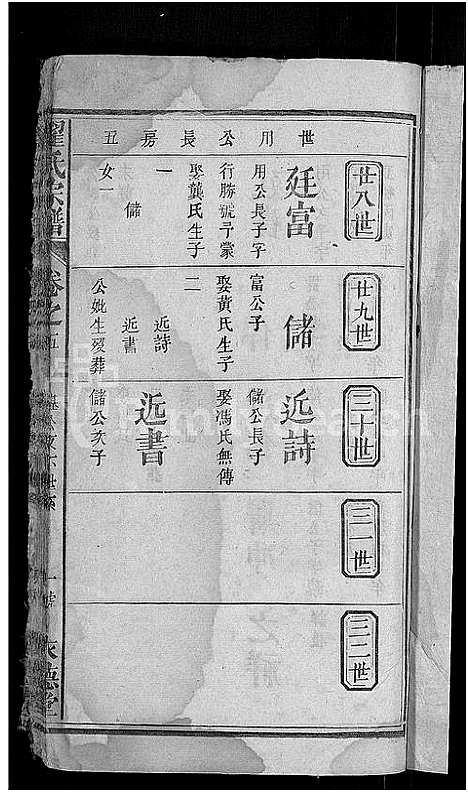 世用公長房五
廿八世
廷富
用公長子字
行勝號予蒙
娶龔氏生子
一
儲
女一
廿九世
儲
富公子
娶黃氏生子
二
近詩
近書
公妣生歿葬
三十世
近詩
儲公長子
娶馮氏無傳
近書
儲公次子
三一世
三二世
翟氏宗譜
卷之五
德堂